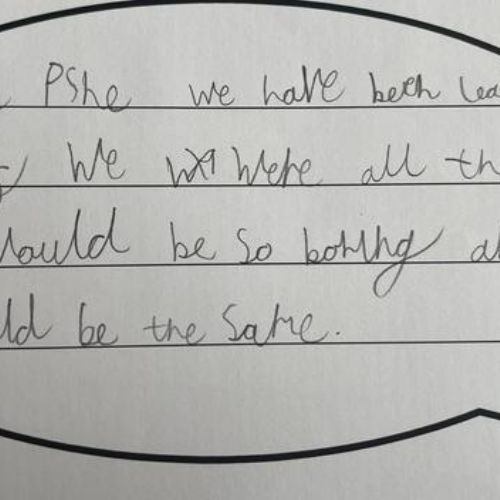 PShe we have been lea
We were all th
would be so boring a
ld be the same.